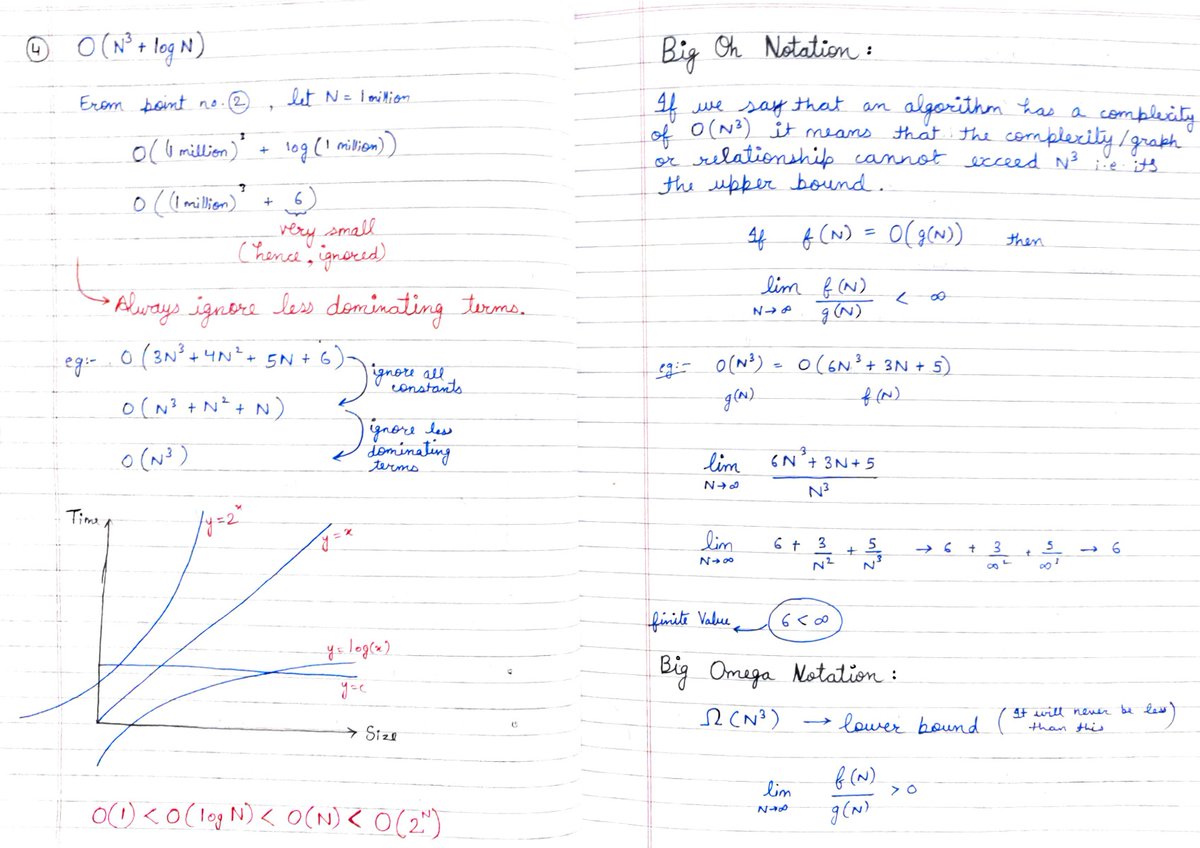 ④ O(N³ + log N)
From point no. ②, let N = 1 million
O((1 million)³ + log(1 million))
O((1 million)³ + 6)
very small
(hence, ignored)
Always ignore less dominating terms.
eg:- O(3N³ + 4N² + 5N + 6)
ignore all
constants
O(N³ + N² + N)
ignore less
dominating
terms
O(N³)
Time
y=2ˣ
y=x
y=log(x)
y=c
Size
O(1) < O(log N) < O(N) < O(2ᴺ)
Big Oh Notation :
If we say that an algorithm has a complexity
of O(N³) it means that the complexity/graph
or relationship cannot exceed N³ i.e. its
the upper bound.
If f(N) = O(g(N)) then
lim N→∞ f(N)/g(N) < ∞
eg:- O(N³) = O(6N³ + 3N + 5)
g(N) f(N)
lim N→∞ (6N³ + 3N + 5)/N³
lim N→∞ 6 + 3/N² + 5/N³ → 6 + 3/∞² + 5/∞³ → 6
finite Value 6 < ∞
Big Omega Notation :
Ω(N³) → lower bound (It will never be less
than this)
lim N→∞ f(N)/g(N) > 0